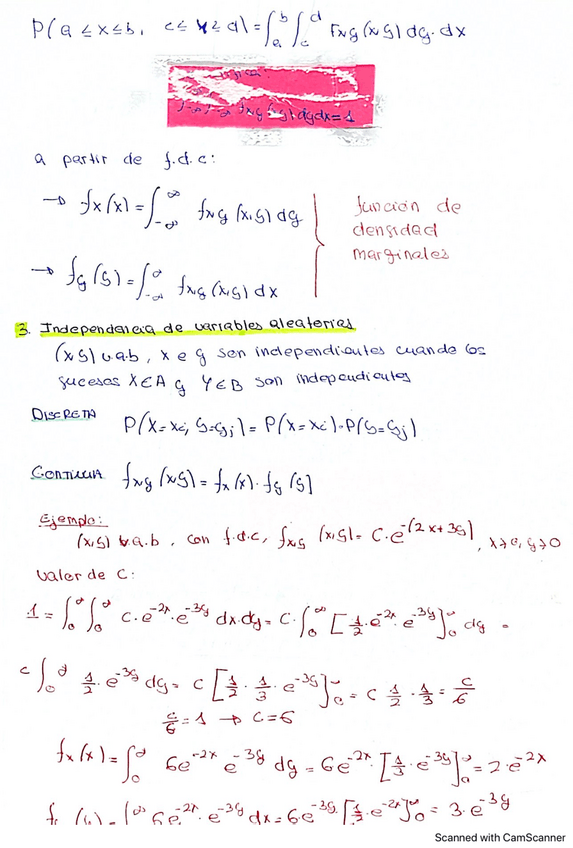 P(a ≤ x ≤ b, c ≤ y ≤ d) = ∫_a^b ∫_c^d fxy (x,y) dy·dx
fxy (x,y) dydx = 1
a partir de f.d.c:
→ fx(x) = ∫_{-∞}^{∞} fxy (x,y) dy
→ fy (y) = ∫_{-∞}^{∞} fxy (x,y) dx
función de
densidad
marginales
3. Independencia de variables aleatorias
(x,y) v.a.b, x e y son independientes cuando los
sucesos X∈A y Y∈B son independientes
DISCRETA P(X=xi, Y=yj) = P(X=xi)·P(Y=yj)
CONTINUA fxy (x,y) = fx(x)·fy (y)
Ejemplo:
(x,y) v.a.b, con f.d.c, fx,y (x,y) = C·e^{-(2x+3y)}, x>0, y>0
valor de C:
1 = ∫_0^∞ ∫_0^∞ c·e^{-2x}·e^{-3y} dx·dy = C·∫_0^∞ [1/2·e^{-2x}·e^{-3y}]_0^∞ dy =
c ∫_0^∞ 1/2·e^{-3y} dy = c [1/2·1/3·e^{-3y}]_0^∞ = c 1/2·1/3 = c/6
c/6 = 1 → C=6
fx(x) = ∫_0^∞ 6e^{-2x} e^{-3y} dy = 6e^{-2x}·[1/3·e^{-3y}]_0^∞ = 2·e^{-2x}
∫_0^∞ 6e^{-2x}·e^{-3y} dx = 6e^{-3y}·[1/2·e^{-2x}]_0^∞ = 3·e^{-3y}
Scanned with CamScanner